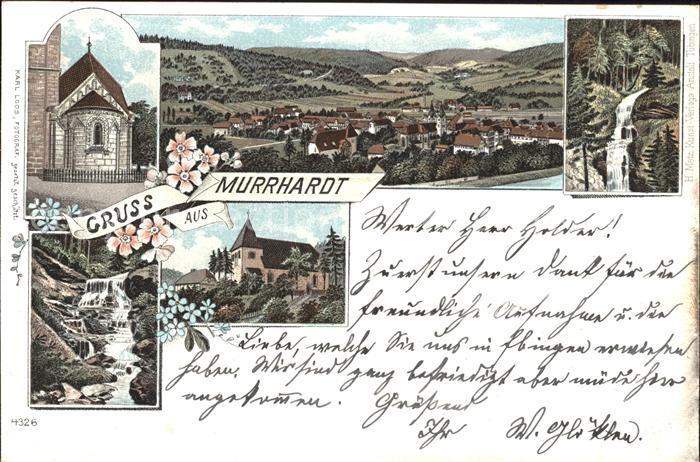 KARL LOOS, FOTOGRAF. gesetzl. geschützt.
GRUSS
AUS
MURRHARDT
Werter Herr Holder!
Zuerst unsern Dank für die
freundliche Aufnahme u. die
Liebe, welche Sie uns in Ebingen erwiesen
haben. Wir sind ganz befriedigt aber müde hier
angekommen. Grüßend
Ihr W. Glöklen.
4326